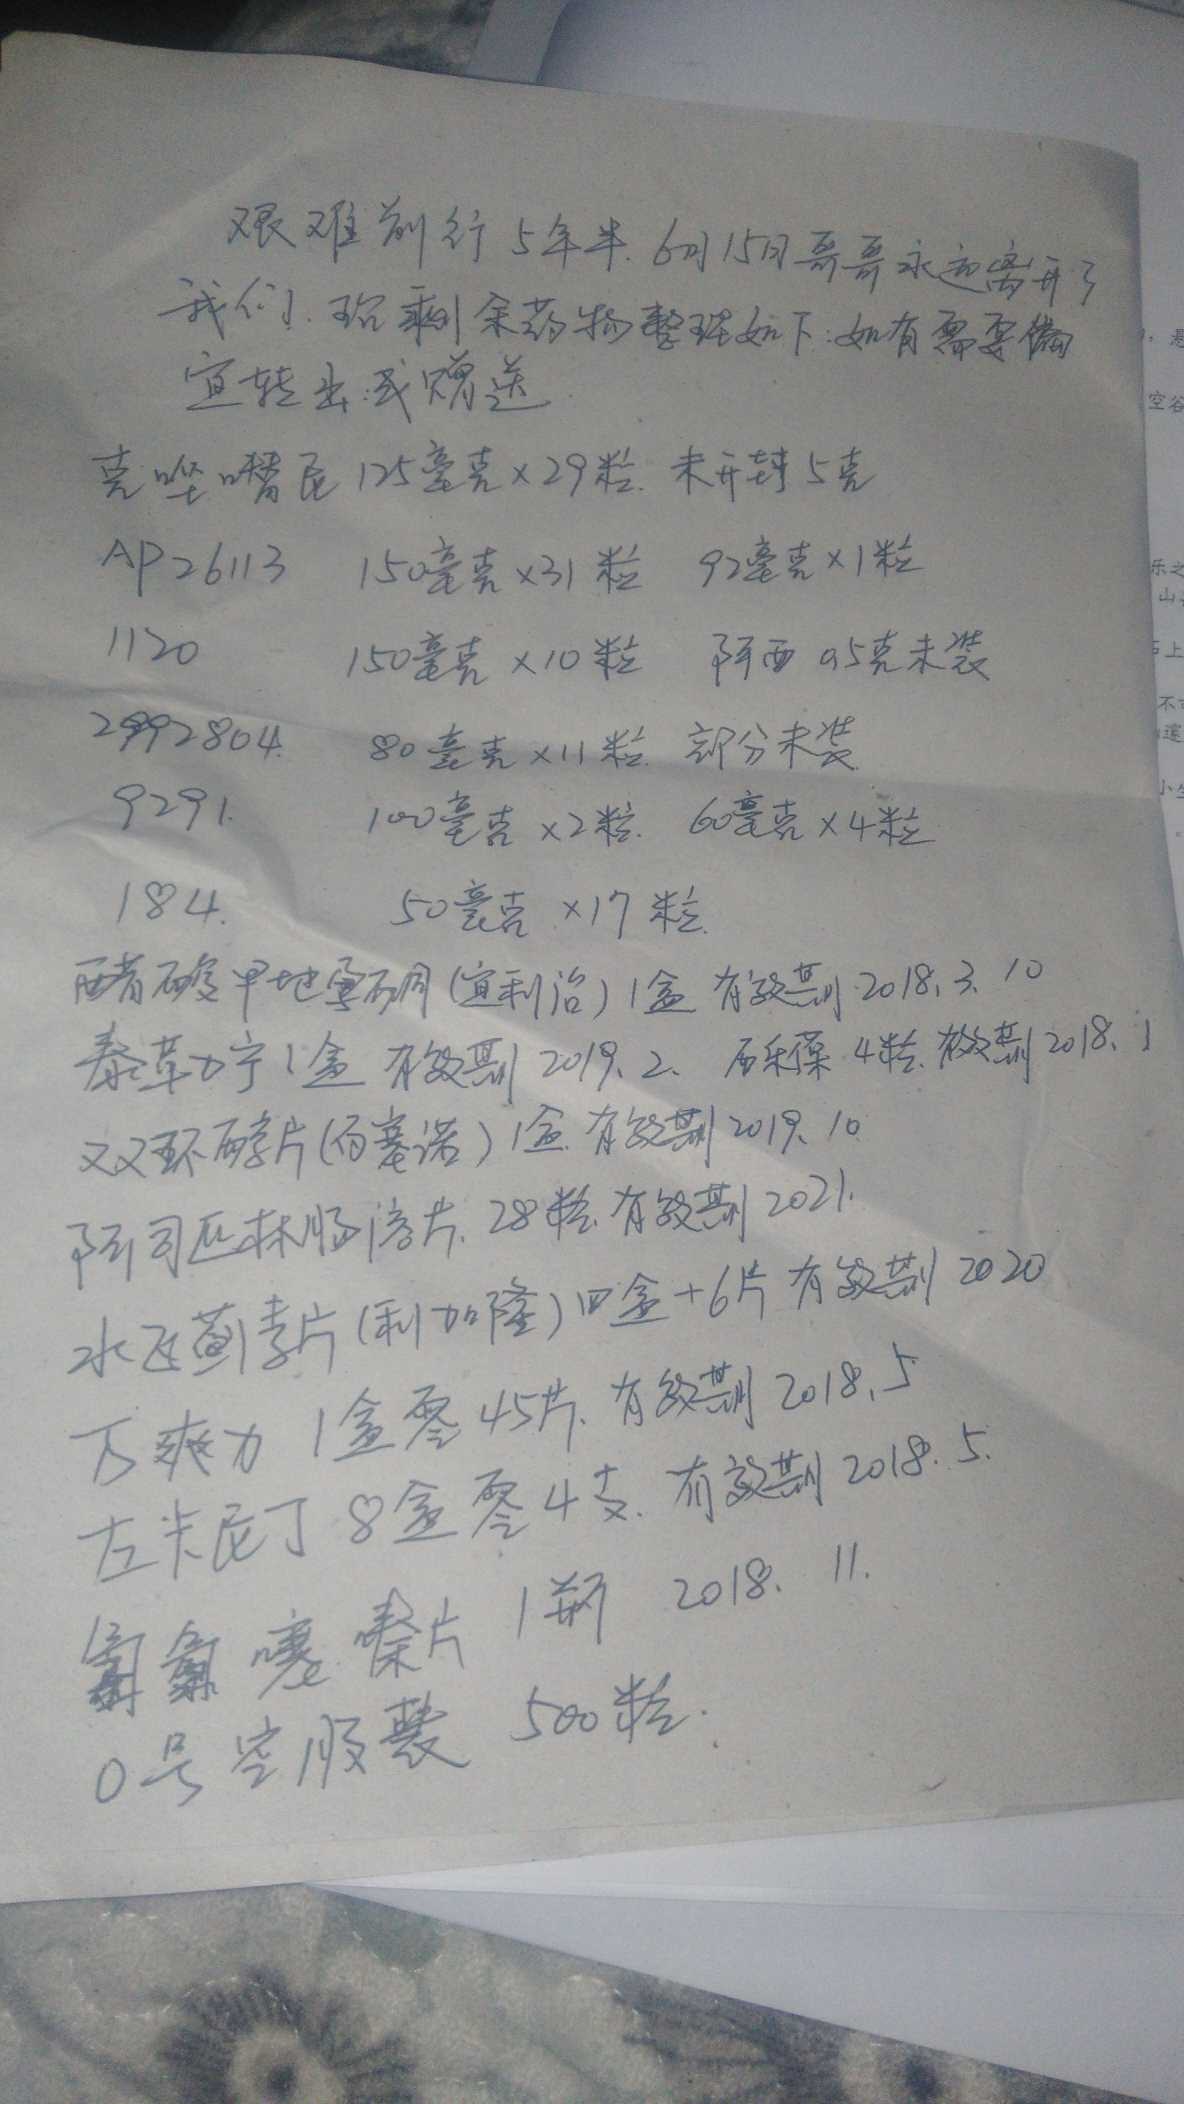 艰难前行5年半.6月15日哥哥永远离开了
我们.现剩余药物整理如下:如有需要偏
宜转出或赠送.
克唑嘈尼 125毫克×29粒. 未开封5克
AP26113 150毫克×31粒 92毫克×1粒
1120 150毫克×10粒 阿西 0.5克未装
2992804. 80毫克×11粒. 部分未装.
9291. 100毫克×2粒. 60毫克×4粒
184. 50毫克×17粒.
醋酸甲地孕酮(宜利治)1盒 有效期2018.3.10
泰莘力宁1盒 有效期2019.2. 西乐葆4粒.有效期2018.1
双环醇片(百塞诺)1盒.有效期2019.10
阿司匹林肠溶片.28粒.有效期2021.
水飞蓟素片(利加隆)四盒+6片 有效期2020
万爽力 1盒零45片.有效期2018.5
左卡尼丁8盒零4支.有效期2018.5.
噻嗪片1瓶 2018.11.
0号空胶囊 500粒.
空谷
乐之
山
石上
不可
小生